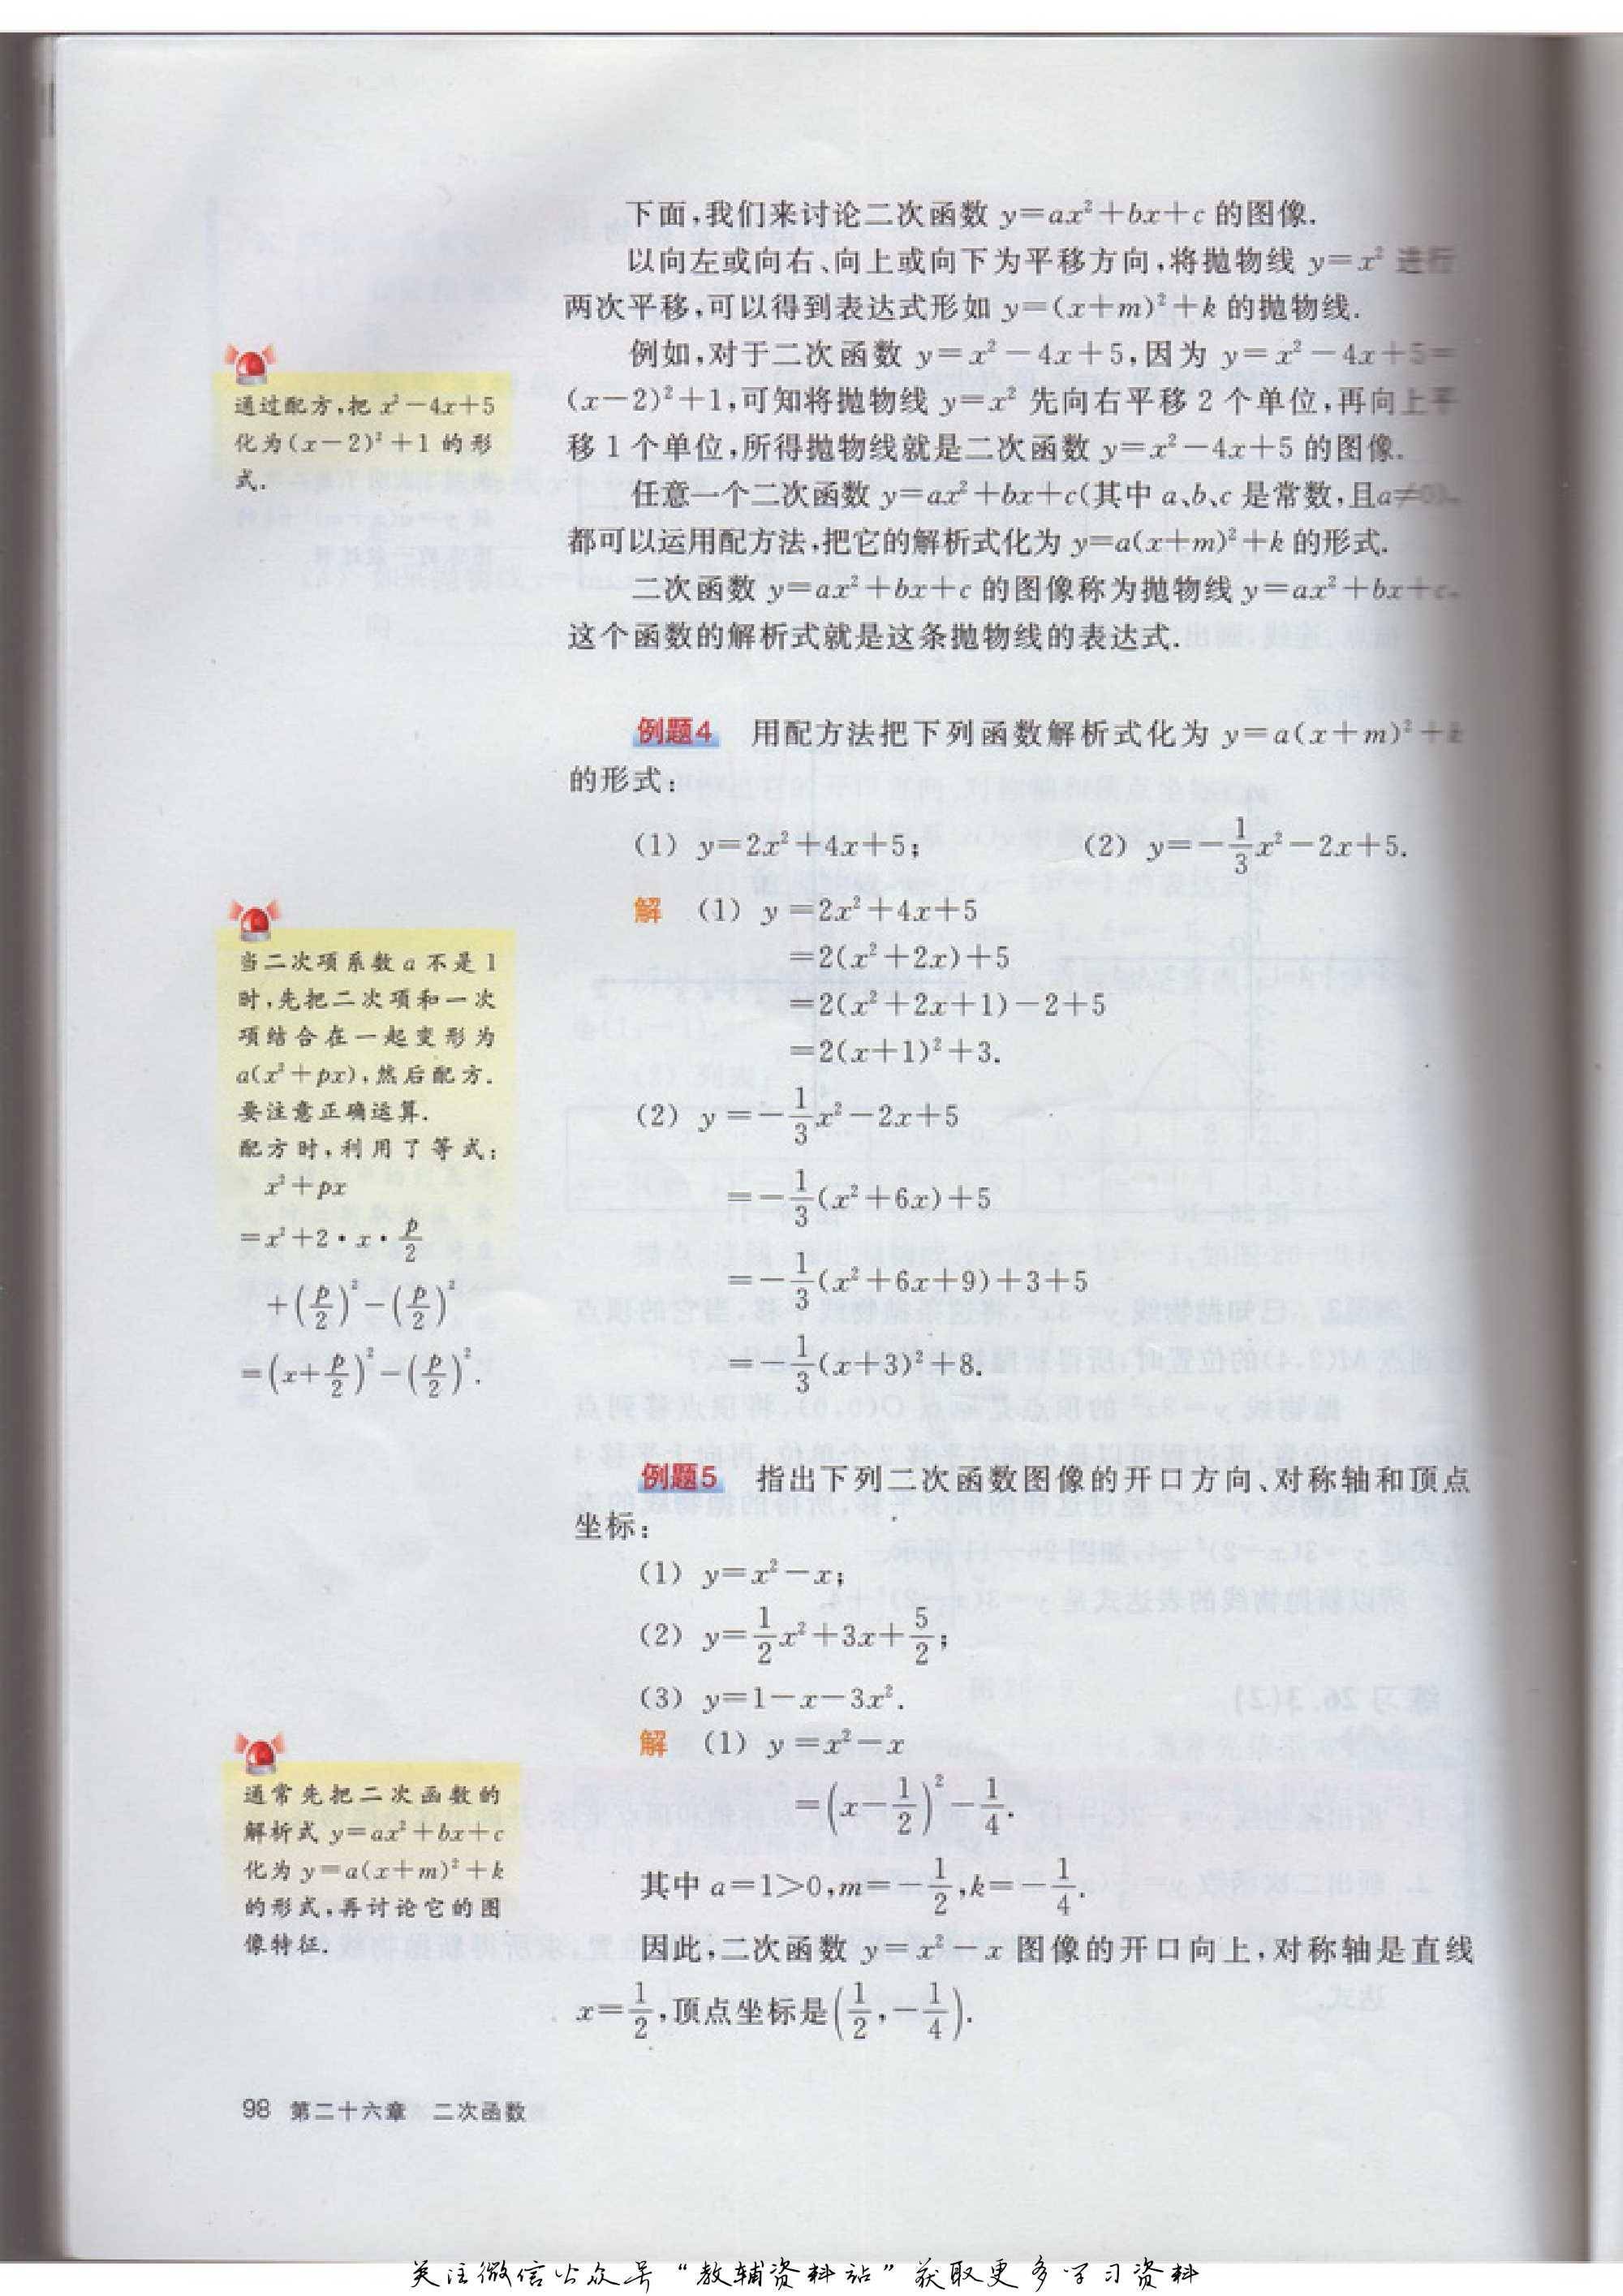 下面,我们来讨论二次函数 y=ax²+bx+c 的图像.
以向左或向右、向上或向下为平移方向,将抛物线 y=x² 进行
两次平移,可以得到表达式形如 y=(x+m)²+k 的抛物线.
例如,对于二次函数 y=x²-4x+5,因为 y=x²-4x+5=
(x-2)²+1,可知将抛物线 y=x² 先向右平移 2 个单位,再向上平
移 1 个单位,所得抛物线就是二次函数 y=x²-4x+5 的图像.
通过配方,把 x²-4x+5
化为(x-2)²+1 的形
式.
任意一个二次函数 y=ax²+bx+c(其中 a、b、c 是常数,且a≠0),
都可以运用配方法,把它的解析式化为 y=a(x+m)²+k 的形式.
二次函数 y=ax²+bx+c 的图像称为抛物线 y=ax²+bx+c,
这个函数的解析式就是这条抛物线的表达式.
例题4 用配方法把下列函数解析式化为 y=a(x+m)²+k
的形式:
(1) y=2x²+4x+5; (2) y=-1/3x²-2x+5.
解 (1) y=2x²+4x+5
=2(x²+2x)+5
=2(x²+2x+1)-2+5
=2(x+1)²+3.
(2) y=-1/3x²-2x+5
=-1/3(x²+6x)+5
=-1/3(x²+6x+9)+3+5
=-1/3(x+3)²+8.
当二次项系数 a 不是 1
时,先把二次项和一次
项结合在一起变形为
a(x²+px),然后配方.
要注意正确运算.
配方时,利用了等式:
x²+px
=x²+2·x·p/2
+(p/2)²-(p/2)²
=(x+p/2)²-(p/2)².
例题5 指出下列二次函数图像的开口方向、对称轴和顶点
坐标:
(1) y=x²-x;
(2) y=1/2x²+3x+5/2;
(3) y=1-x-3x².
解 (1) y=x²-x
=(x-1/2)²-1/4.
其中 a=1>0,m=-1/2,k=-1/4.
因此,二次函数 y=x²-x 图像的开口向上,对称轴是直线
x=1/2,顶点坐标是(1/2,-1/4).
通常先把二次函数的
解析式 y=ax²+bx+c
化为 y=a(x+m)²+k
的形式,再讨论它的图
像特征.
98 第二十六章 二次函数
关注微信公众号“教辅资料站”获取更多学习资料